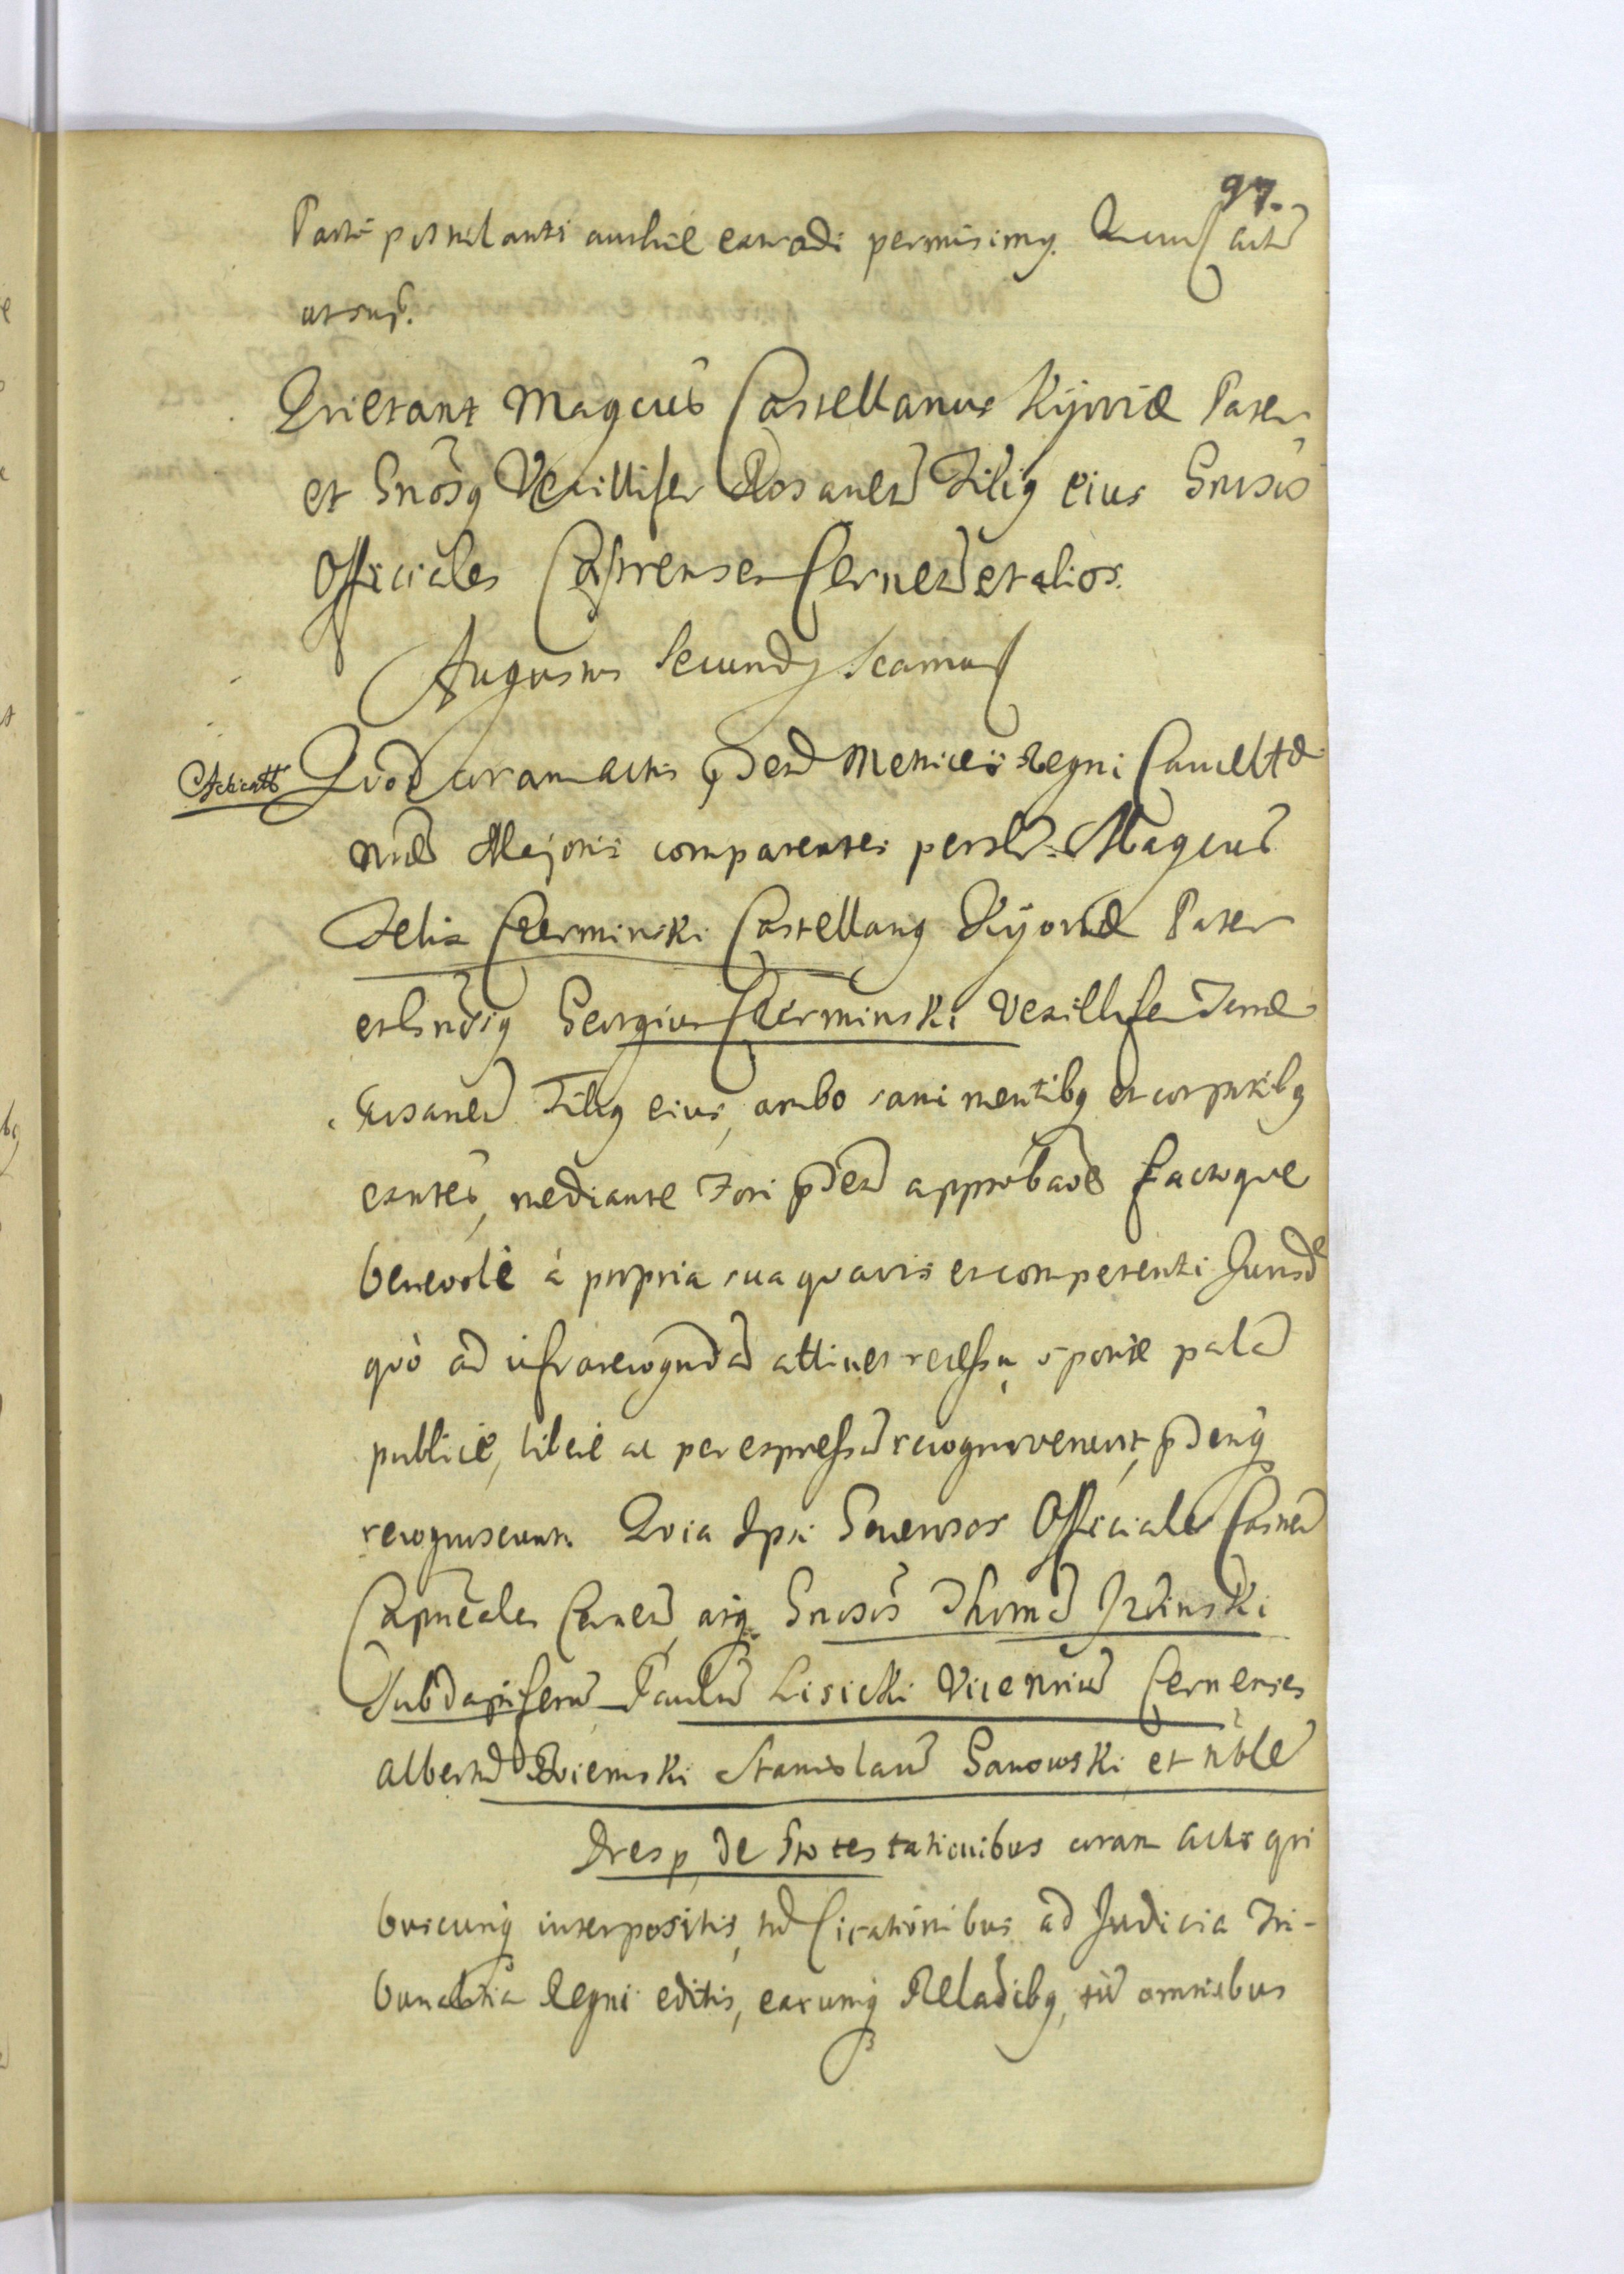 97.
Parti postulanti authce extradi permisimq. Actū
ut supr.
Quietant Magcus Castellanus Kijoviæ Pater
et Gnosq Vexillifer Rosanen Filiq eius Gnosos
Officiales Castrenses Cernen et alios.
Augustus Secundq Seamus
Quod coram actis pden Metrices Regni Cancellæ
nræ Majoris comparentes persler Magcus
Felix Czerminski Castellanq Kijoviæ Pater
et Gnosq Georgius Czerminski Vexillifer Terræ
Rosanen Filiq eius, ambo sani mentibq et corporibq
exntes, mediante Fori pden approbaoe factoque
benevole à propria sua quavis et competenti Jurisde
quò ad infrarecogndā attinet recessu, sponte palā
publice, libere ac per expressū recognoverunt, pdenq
recognoscunt. Quia Ipsi Generosos Officiales Castren
Capneales Cernen, atq Gnosos Thomā Jzbinski
Subdapiferū Paulū Lisicki Vicenriū Cernenses
Albertū Kriemski Stanislaū Ganowski et nble
Dresp, de Protestationibus coram Actis qui
buscunq interpositis, td Citationibus ad Judicia Tri-
bunalitia Regni editis, earumq Relaoibq, tū omnibus